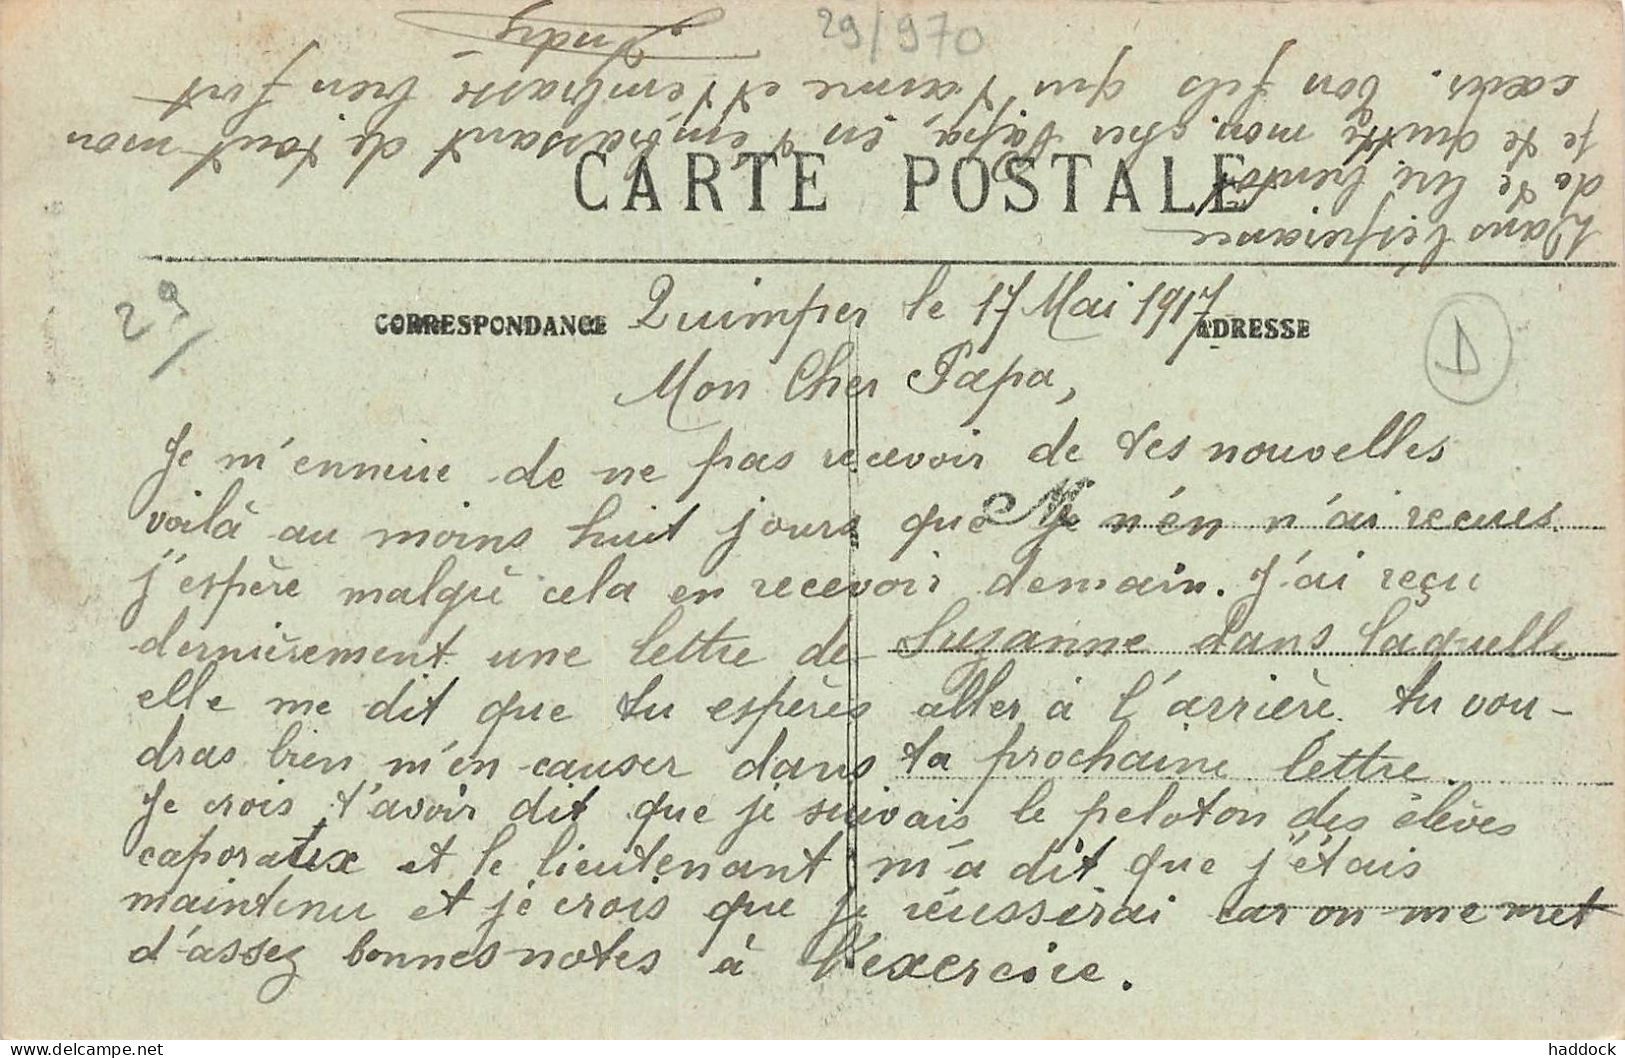 29/970
CARTE POSTALE
CORRESPONDANCE
ADRESSE
29/
D
Quimper le 17 Mai 1917
Mon Cher Papa,
Je m'ennuie de ne pas recevoir de tes nouvelles
voilà au moins huit jours que je n'en n'ai recues.
j'espère malgré cela en recevoir demain. J'ai reçu
dernièrement une lettre de Suzanne dans laquelle
elle me dit que tu espères aller à l'arrière. tu vou-
dras bien m'en causer dans ta prochaine lettre.
Je crois t'avoir dit que je suivais le peloton des élèves
caporaux et le lieutenant m'a dit que j'étais
maintenu et je crois que je réussirai car on me met
d'assez bonnes notes à l'exercice.
Dans l'espérance
de te lire bientôt
je te quitte mon cher Papa en t'embrassant de tout mon
cœur. ton fils qui t'aime et t'embrasse bien fort
André
haddock